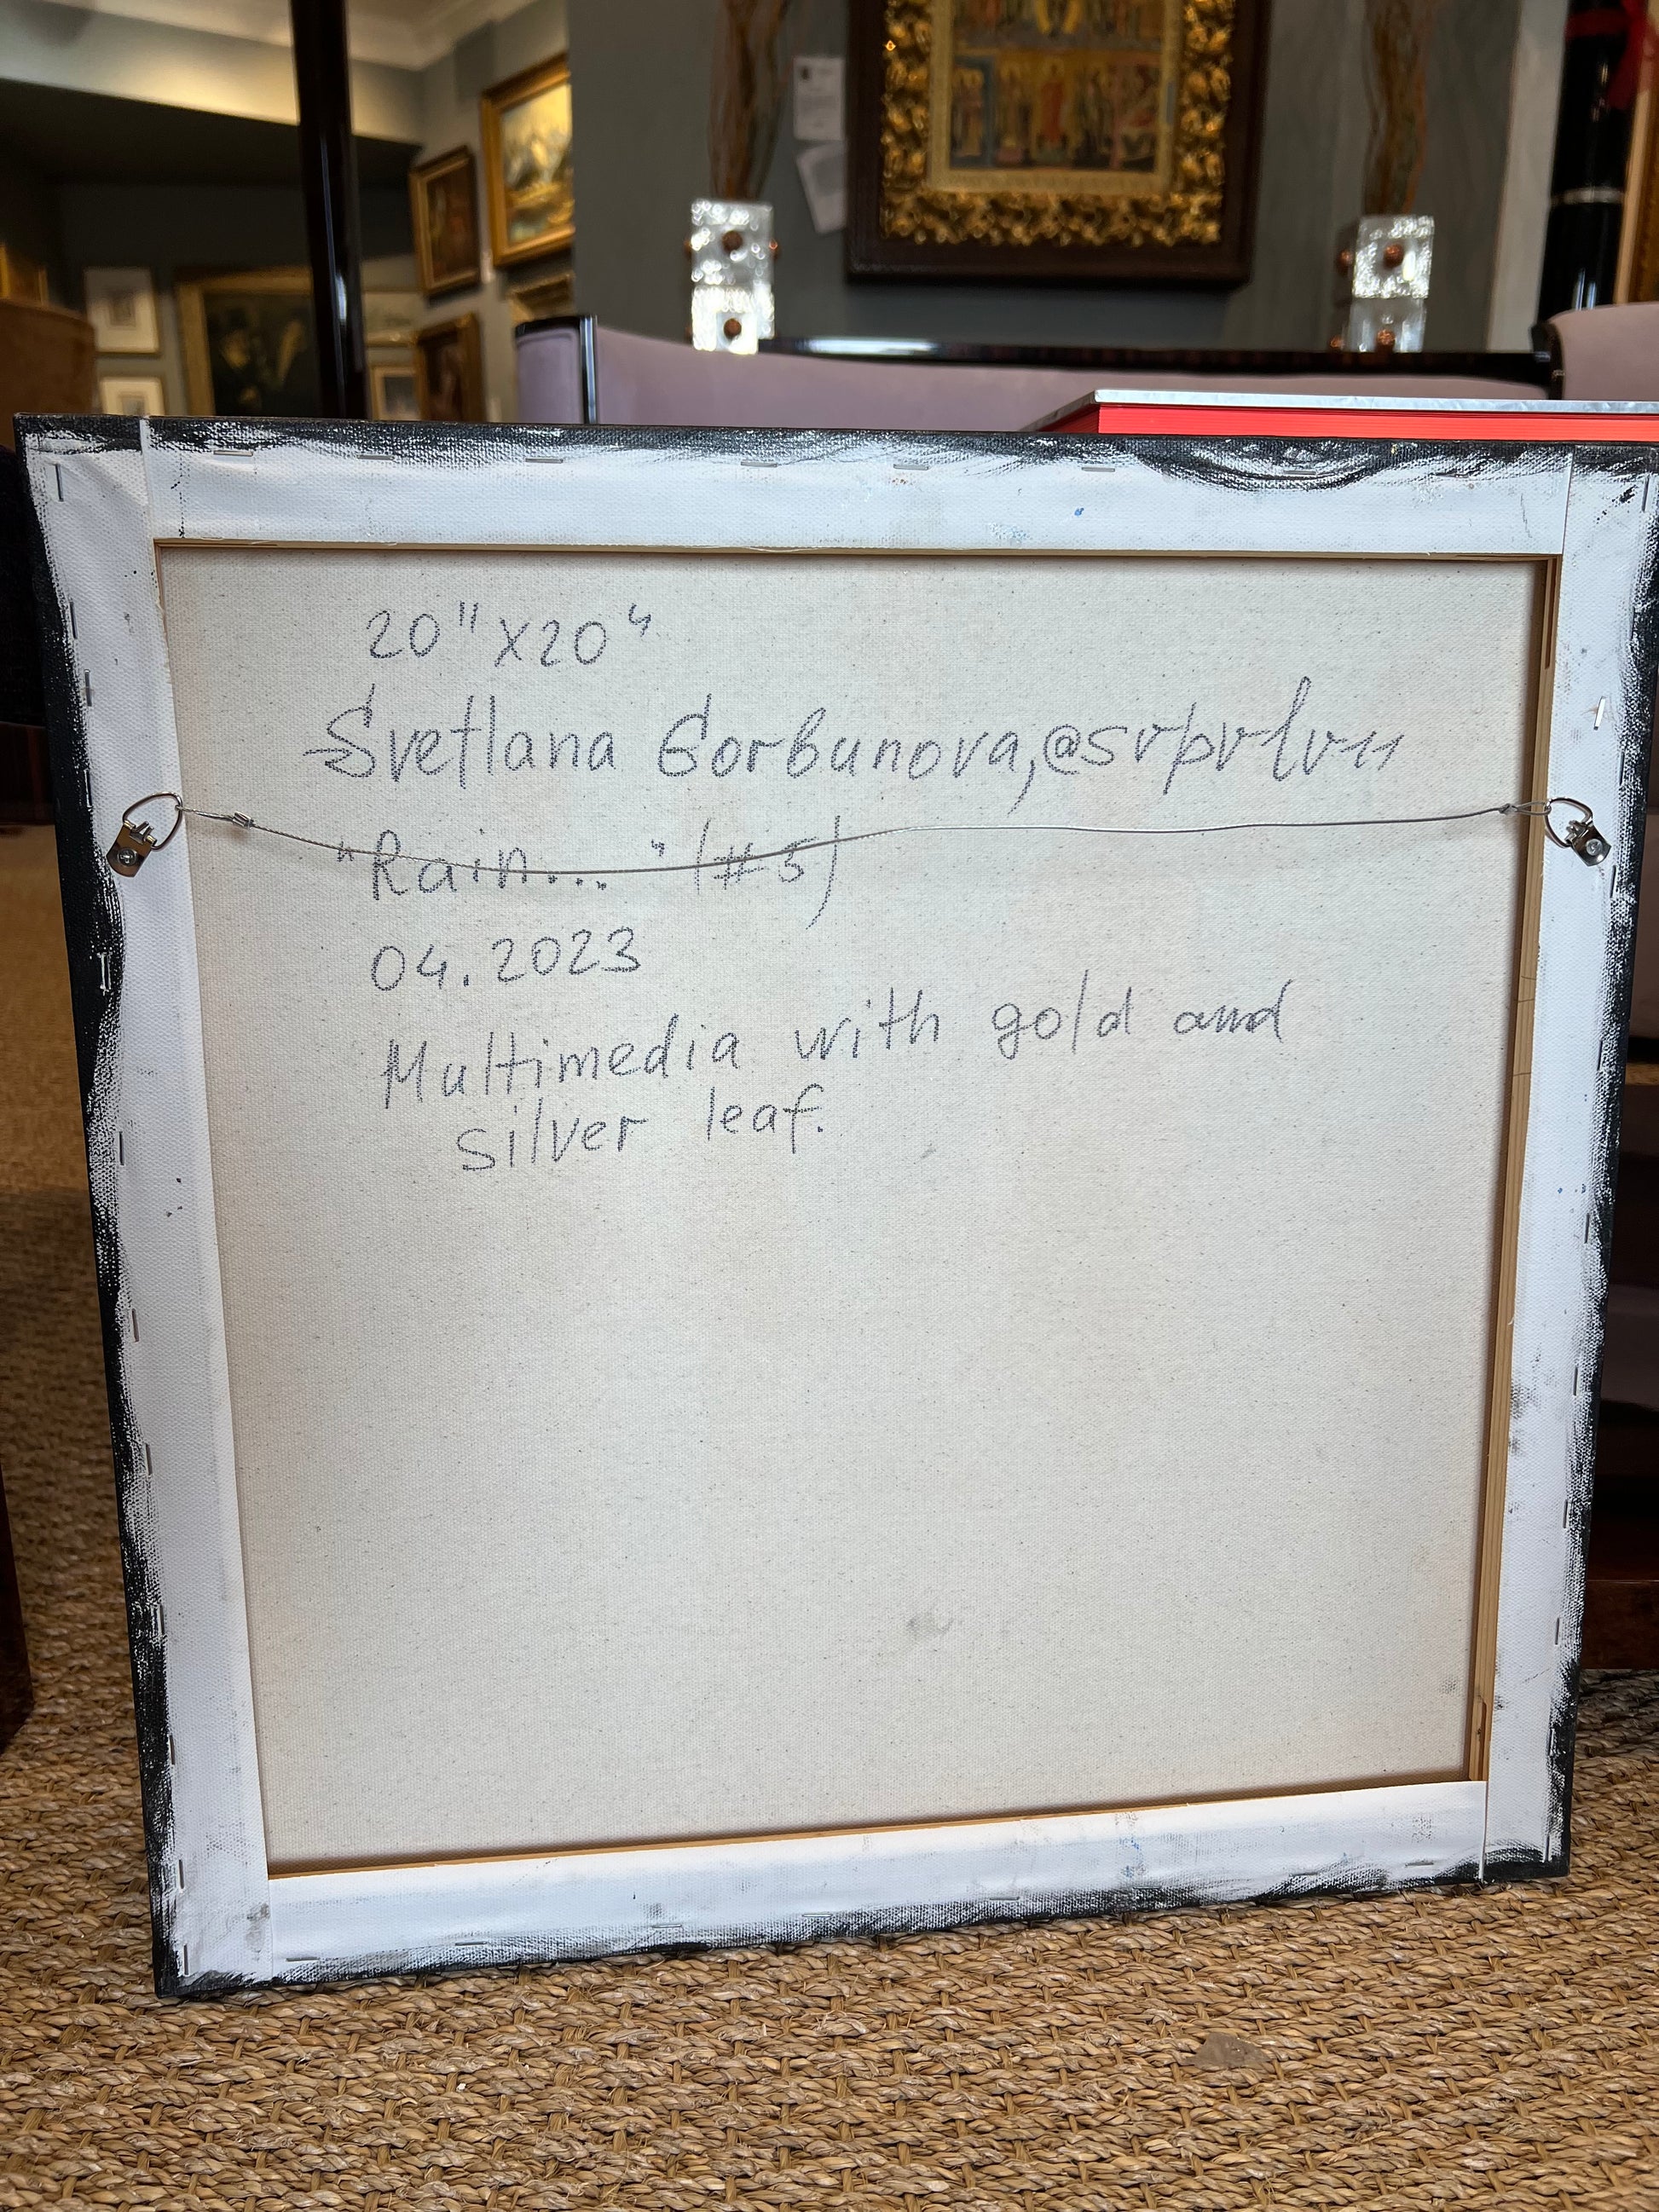 20" x 20"
Svetlana Gorbunova,
"Rain..." (#5)
04.2023
Multimedia with gold and
silver leaf.